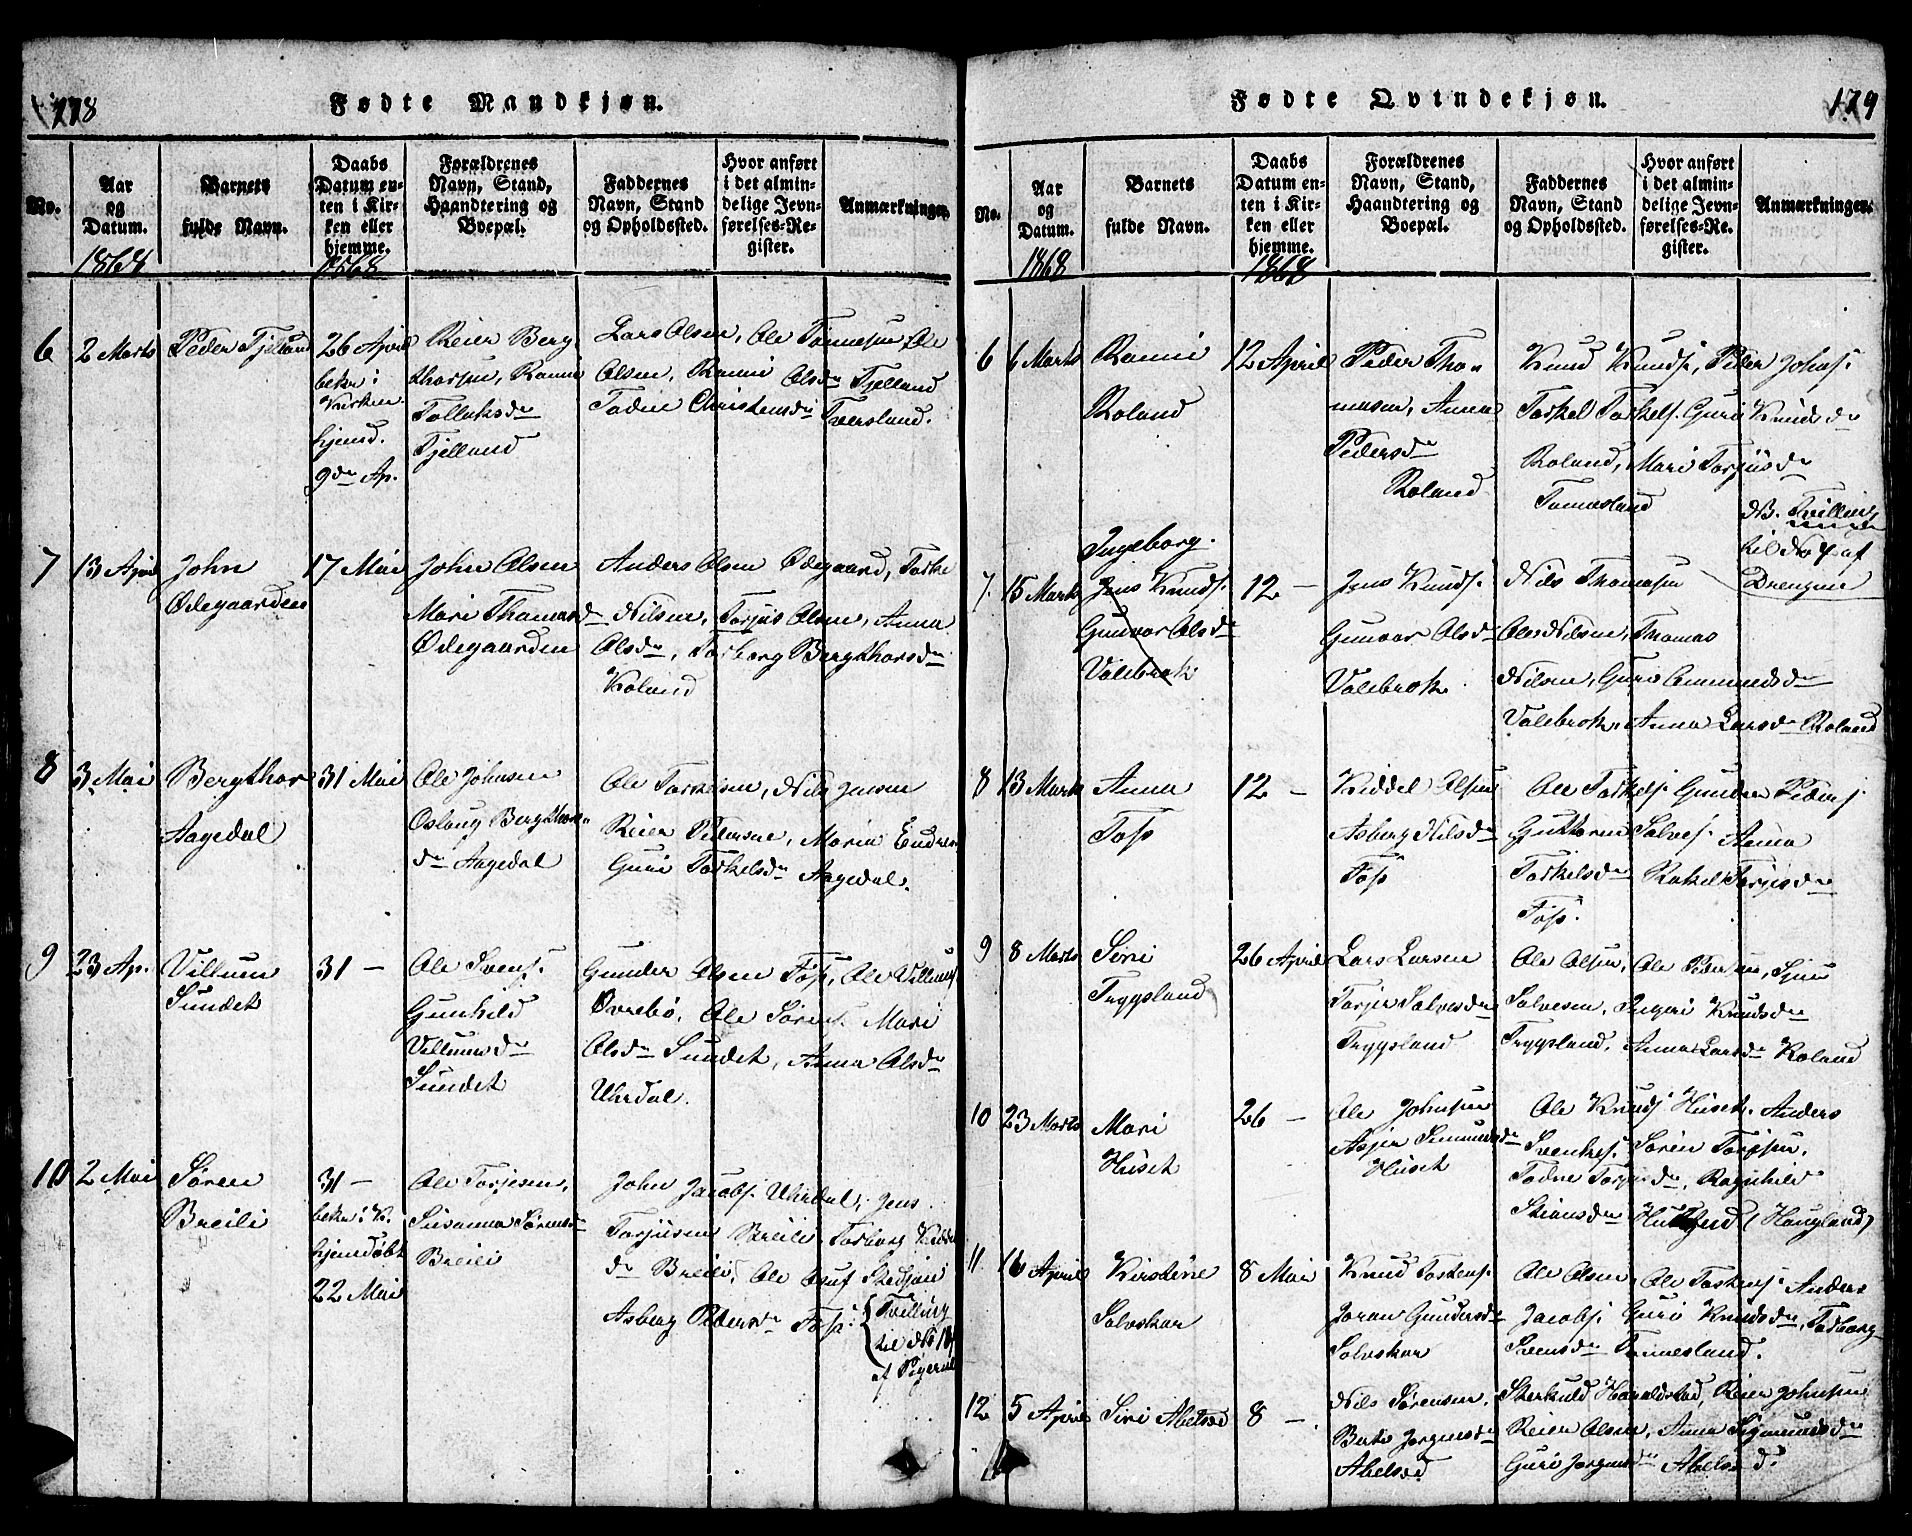 178
Fødte Mandkjøn.
No.
Aar
og
Datum.
1868
Barnets
fulde Navn.
Daabs
Datum en-
ten i Kir-
ken eller
hjemme.
1868
Forældrenes
Navn, Stand,
Haandtering og
Boepæl.
Faddernes
Navn, Stand
og Opholdssted.
Hvor anført
i det almin-
delige Jevn-
førelses-Re-
gister.
Anmærkninger.
6
2 Marts
Peder Fjelland
26 April
bekr i
Kirken
hjemd.
9de Ap.
Reier Berg
thorsen, Ranni
Tollaksdr
Fjelland
Lars Olsen, Ole Tønnesen, Ole
Olsen, Ranni Olsdr Fjelland
Todne Christensdr Tversland.
7
13 April
John
Ødegaarden
17 Mai
John Olsen
Mari Thomasdr
Ødegaarden
Anders Olsen Ødegaard, Torke
Nilsen, Torjus Olsen, Anna
Olsdr, Torborg Bergthorsdr
Roland
8
3 Mai
Bergthor
Aagedal
31 Mai
Ole Johnsen
Oslaug Bergthors
dr Aagedal
Ole Torkelsen, Nils Jensen
Reier Pedersen, Maria Endres
Guri Torkelsdr Aagedal.
9
23 Ap.
Villum
Sundet
31 –
Ole Svens.
Gunhild
Villumsdr
Sundet
Gunder Olsen Foss, Ole Villums
Øvrebø, Ole Sørens. Mari
Olsdr Sundet, Anna Olsdr
Uhrdal.
10
2 Mai
Søren
Breili
31 –
bekr i K.
hjemdøbt
22 Mai
Ole Torjesen,
Susanna Sørensdr
Breili
John Jacobs. Uhrdal, Jens
Torjusen Breili, Torborg
dr Breili, Ole
Asberg Pedersdr Foss.
Tvilling
til No 18
af Pigerne
179
Fødte Qvindekjøn.
No.
Aar
og
Datum.
1868
Barnets
fulde Navn.
Daabs
Datum en-
ten i Kir-
ken eller
hjemme.
1868
Forældrenes
Navn, Stand,
Haandtering og
Boepæl.
Faddernes
Navn, Stand
og Opholdssted.
Hvor anført
i det almin-
delige Jevn-
førelses-Re-
gister.
Anmærkninger.
6
6 Marts
Ranni
Roland
12 April
Peder Tho-
masen, Anna
Pedersdr
Roland
Knud Knuds, Peder Johns.
Torkel Torkels. Guri Knudsdr
Roland, Mari Torjusdr
Tomasland
NB. Tvilling
til No 4 af
Drengene
7.
15 Marts
Ingeborg.
Jens Knuds.
Gunvor Olsdr
Valebrok
12 –
Jens Knuds.
Gunvor Olsdr
Valebrok
Nils Thomasen
Ole Nilsen, Thomas
Nilsen, Guri Ommundsdr
Valebrok, Anna Larsdr Roland
8
13 Marts
Anna
Foss
12 –
Kiddel Olsen
Asberg Nilsdr
Foss
Ole Torkels. Gunder Peders.
Guttorm Salves. Anna
Torkelsdr Rakel Torjesdr
Foss.
9
8 Marts
Siri
Tryggsland
26 April
Lars Larsen
Torjer Salvesdr
Tryggsland
Ole Olsen, Ole Pedersen,
Salvesen, Ingeri Knudsdr
Tryggsland, Anna Larsdr Roland
10
23 Marts
Mari
Huset
26 –
Ole Johnsen
Asjer Simundsdr
Huset
Ole Knuds. Huset, Anders
Svenkes. Søren Torjsen,
Todne Torjusdr, Ragnhild
(Haugland)
11.
16 April
Kirstine
Solvskar
8 Mai
Knud Torkens.
Joran Gundersdr
Solvskar
Ole Olsen, Ole Torkens. Anders
Jacobs. Guri Knudsdr, Torborg
Svensdr Finnesland.
12
5 April
Siri Abelsed
8 –
Nils Sørensen,
Berte Jørgensdr
Abelsed
Sterkuld Haraldstad, Reier Johnsen
Reier Olsen, Anna Sigmundsdr
Guri Jørgensdr Abelsed.